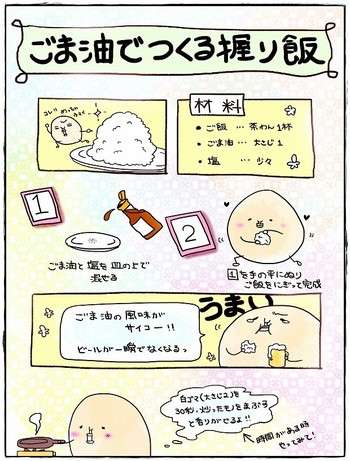 ごま油でつくる握り飯
コレ!めっちゃ
ウマイ
材料
・ご飯 … 茶わん1杯
・ごま油 … 大さじ1
・塩 … 少々
1
2
ごま油と塩を皿の上で
混ぜる
1を手の平にぬり
ご飯をにぎって完成
うまい
ごま油の風味が
サイコー!!
ビールが一瞬でなくなるっ
白ゴマ(大さじ2)を
30秒炒ったモノをまぶす
と香りがでるよ!!
時間がある時
やってみて!